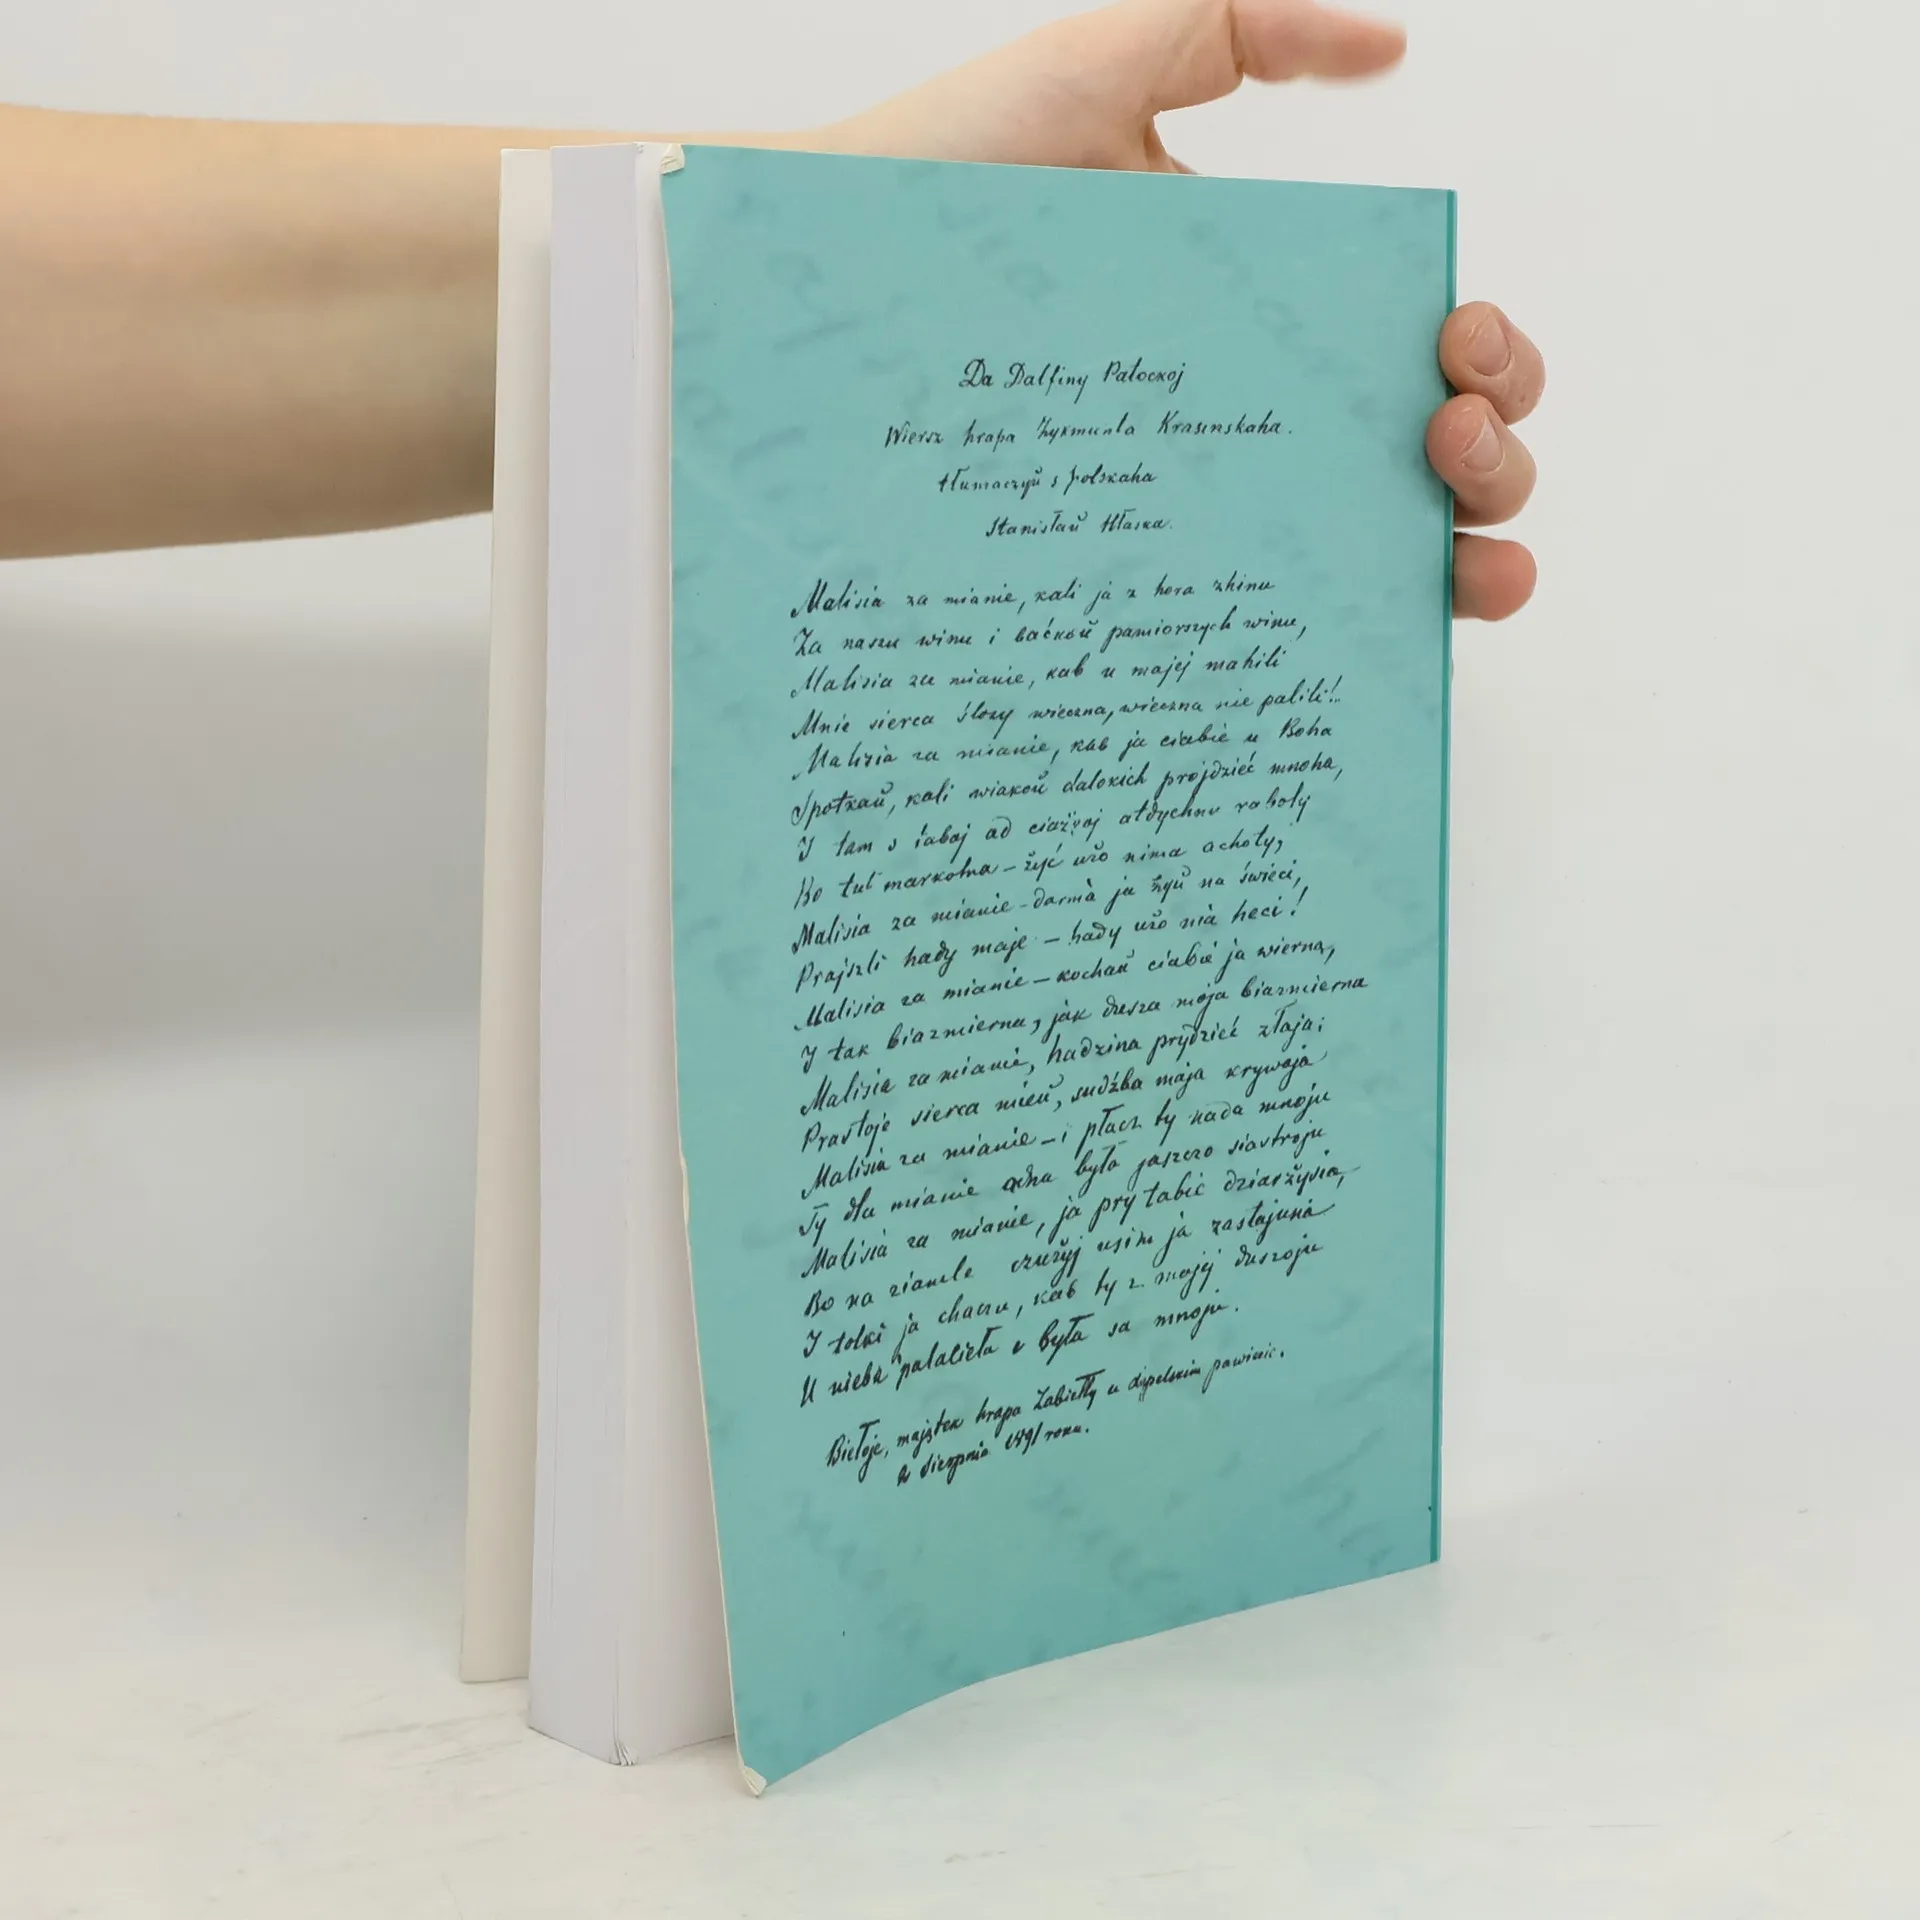 Da Dalfiny Patockoj
Wiersz hrapa Zykmunta Krasinskaha.
tłumaczyŭ s polskaha
Stanisłaŭ Hłaska.
Malisia za mianie, kali ja z hora zhinu
Za naszu winu i baćkoŭ pamiorszych winu,
Malisia za mianie, kab u majej mahili
Mnie sierca ślozy wieczna, wieczna nie palili!..
Malisia za mianie, kab ja ciabie u Boha
Spotkaŭ, kali wiakoŭ dalokich projdzieć mnoha,
I tam s taboj ad ciażkoj atdychnu raboty
Bo tut markotna – żyć użo nima achoty,
Malisia za mianie – darma ja żyŭ na świeci,
Prajszli hady maje – hady użo nia heci!
Malisia za mianie – kochaŭ ciabie ja wierna,
I tak biazmierna, jak dusza moja biazmierna
Malisia za mianie, hadzina prydzieć złaja;
Prastoje sierca mieŭ, sudźba maja krywaja
Malisia za mianie – i płacz ty nada mnoju
Ty dla mianie adna była jaszczo siastroju
Malisia za mianie, ja pry tabie dziarżysia,
Bo na ziamle czużyj usim ja zastajusia
I tolki ja chaczu, kab ty z majej duszoju
U nieba palacieła i była sa mnoju.
Biełoje, majątek hrapa Zabiełły u lepelskim pawiecie.
2 sierpnia 1891 roku.